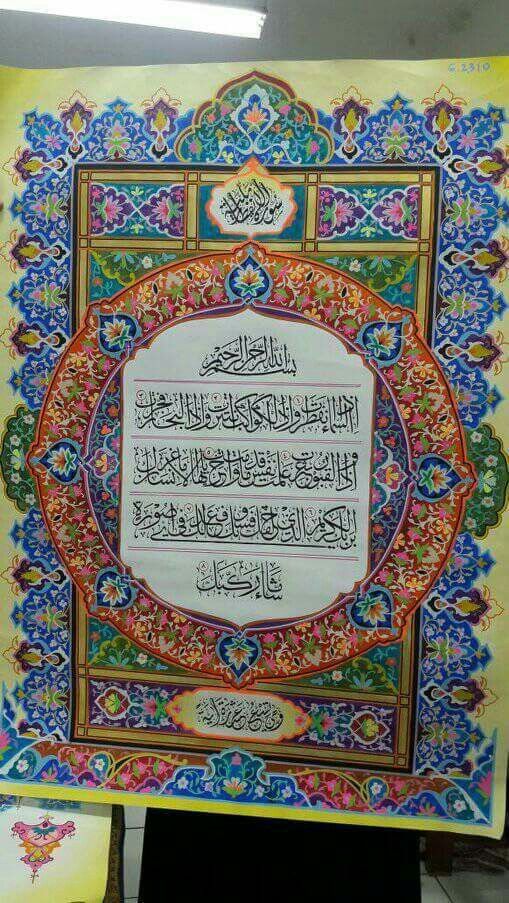 G.2310
سورة الانفطار
بسم الله الرحمن الرحيم
إذا السماء انفطرت ١ وإذا الكواكب انتثرت ٢ وإذا البحار فجرت ٣
وإذا القبور بعثرت ٤ علمت نفس ما قدمت وأخرت ٥ يا أيها الإنسان ما غرك
بربك الكريم ٦ الذي خلقك فسواك فعدلك ٧ في أي صورة ما
شاء ركبك ٨
وهي تسع عشرة آية